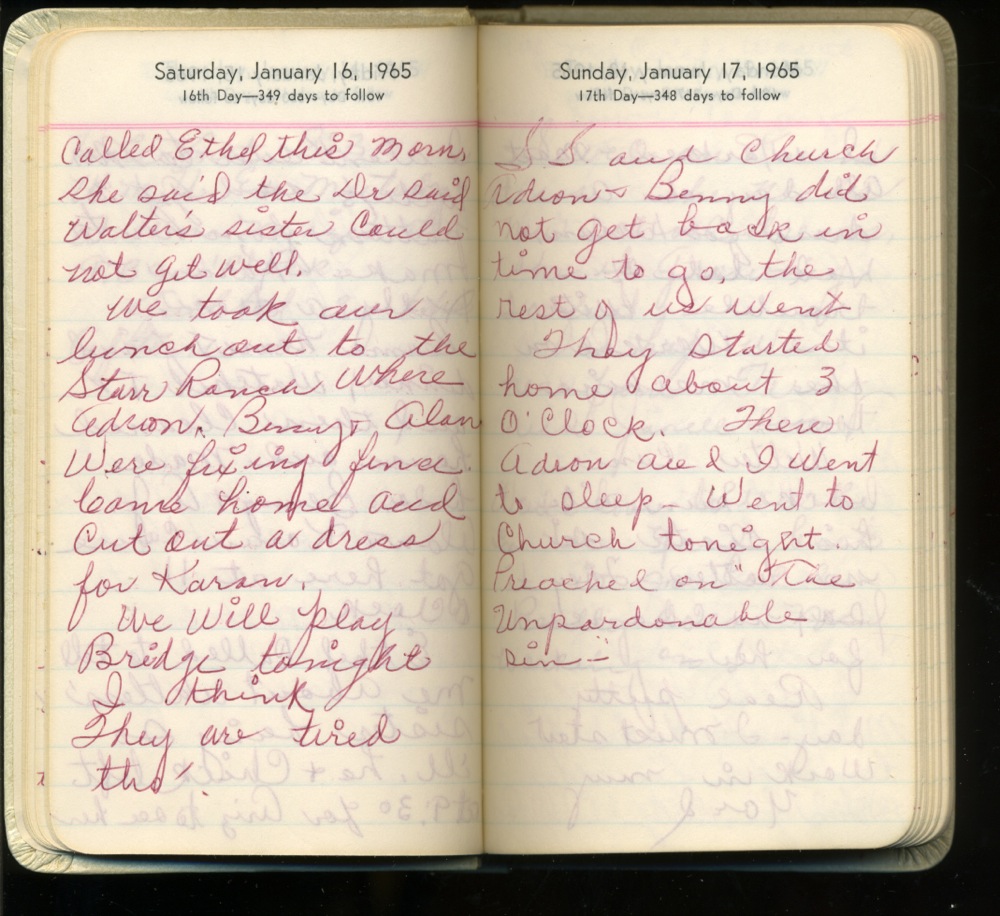 Saturday, January 16, 1965
16th Day—349 days to follow
Called Ethel this morn,
she said the Dr said
Walter's sister Could
not get well.
We took our
lunch out to the
Starr Ranch Where
Adron, Benny & Alan
Were fixing fence.
Came home and
Cut out a dress
for Karan.
We Will play
Bridge tonight
I think
They are tired
tho'.
Sunday, January 17, 1965
17th Day—348 days to follow
S S and Church
Adron & Benny did
not get back in
time to go, the
rest of us Went
They Started
home about 3
O'Clock. Then
Adron and I Went
to sleep - Went to
Church tonight.
Preached on "The
Unpardonable
sin -"